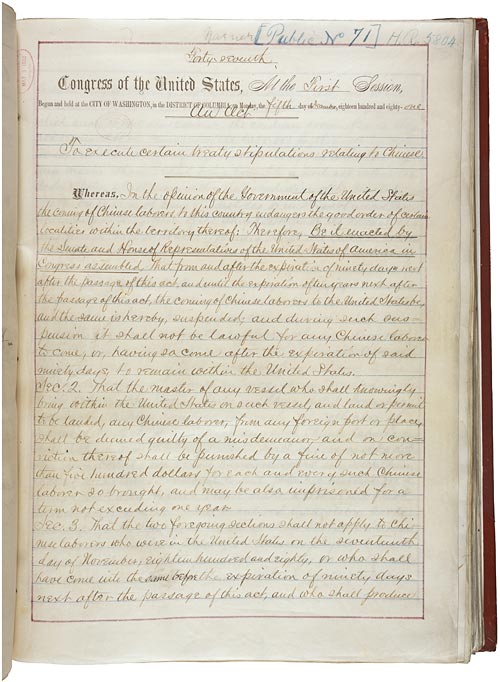 [Public No 71] H.R. 5804.
Forty-seventh
Congress of the United States, At the First Session,
Begun and held at the CITY OF WASHINGTON, in the DISTRICT OF COLUMBIA, on Monday, the fifth day of December, eighteen hundred and eighty-one
An Act
To execute certain treaty stipulations relating to Chinese.
Whereas, In the opinion of the Government of the United States
the coming of Chinese laborers to this country endangers the good order of certain
localities within the territory thereof: Therefore, Be it enacted by
the Senate and House of Representatives of the United States of America in
Congress assembled, That from and after the expiration of ninety days next
after the passage of this act, and until the expiration of ten years next after
the passage of this act, the coming of Chinese laborers to the United States be,
and the same is hereby, suspended; and during such sus-
pension it shall not be lawful for any Chinese laborer
to come, or, having so come after the expiration of said
ninety days, to remain within the United States.
Sec. 2. That the master of any vessel who shall knowingly
bring within the United States on such vessel, and land or permit
to be landed, any Chinese laborer, from any foreign port or place,
shall be deemed guilty of a misdemeanor, and on con-
viction thereof shall be punished by a fine of not more
than five hundred dollars for each and every such Chinese
laborer so brought, and may be also imprisoned for a
term not exceeding one year.
Sec. 3. That the two foregoing sections shall not apply to Chi-
nese laborers who were in the United States on the seventeenth
day of November, eighteen hundred and eighty, or who shall
have come into the same before the expiration of ninety days
next after the passage of this act, and who shall produce